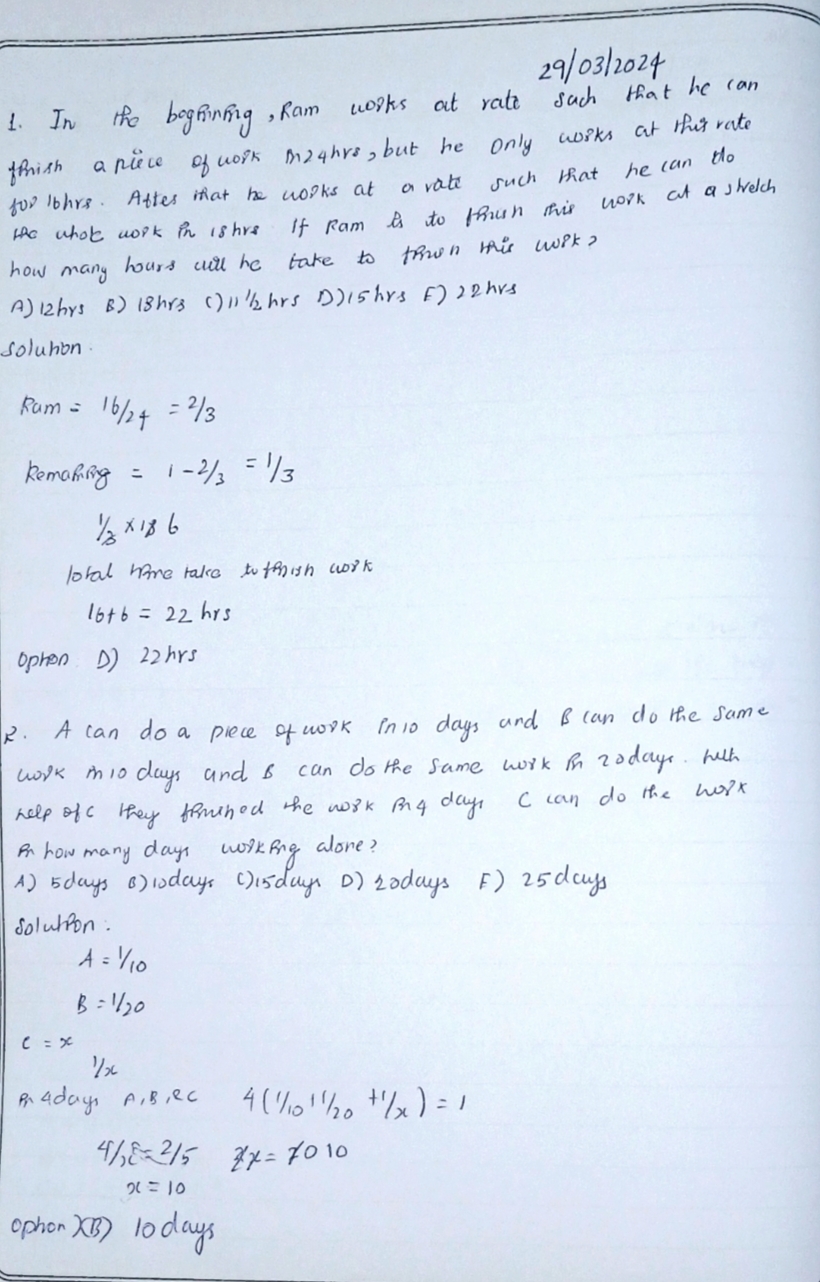 29/03/2024
1. In the beginning, Ram works at rate such that he can
finish a piece of work in 24hrs, but he only works at this rate
for 16hrs. After that he works at a rate such that he can do
the whole work in 18hrs If Ram is to finish this work at a stretch
how many hours will he take to finish this work?
A) 12hrs B) 18hrs C) 11 1/2 hrs D) 15hrs E) 22hrs
Solution.
Ram = 16/24 = 2/3
Remaining = 1 - 2/3 = 1/3
1/3 × 18 6
Total time take to finish work
16+6 = 22 hrs
Option D) 22hrs
2. A can do a piece of work in 10 days and B can do the same
work in 10 days and B can do the same work in 20days. with
help of C they finished the work in 4 days C can do the work
in how many days working alone?
A) 5days B) 10days C) 15days D) 20days E) 25days
Solution:
A = 1/10
B = 1/20
C = x
1/x
in 4days A, B, & C 4(1/10 + 1/20 + 1/x) = 1
= 2/5 = 10
x = 10
Option B) 10days